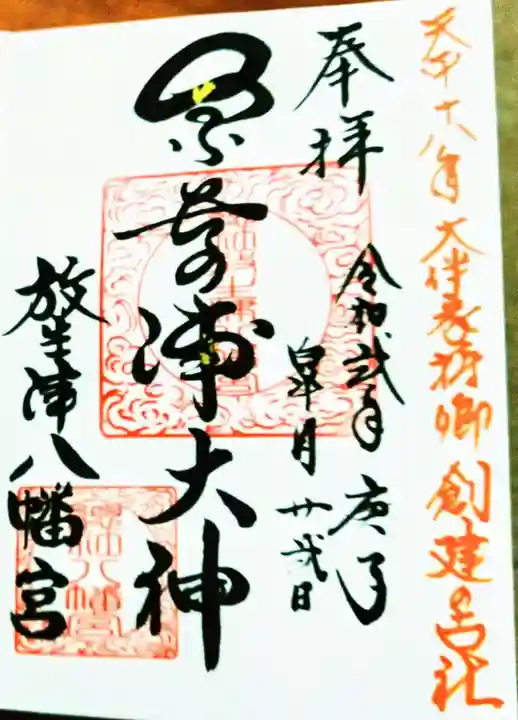 天平十八年 大伴家持卿 創建の古社
奉拝
令和弐年 庚子
皐月 廿弐日
奈呉の浦大神
放生津八幡宮